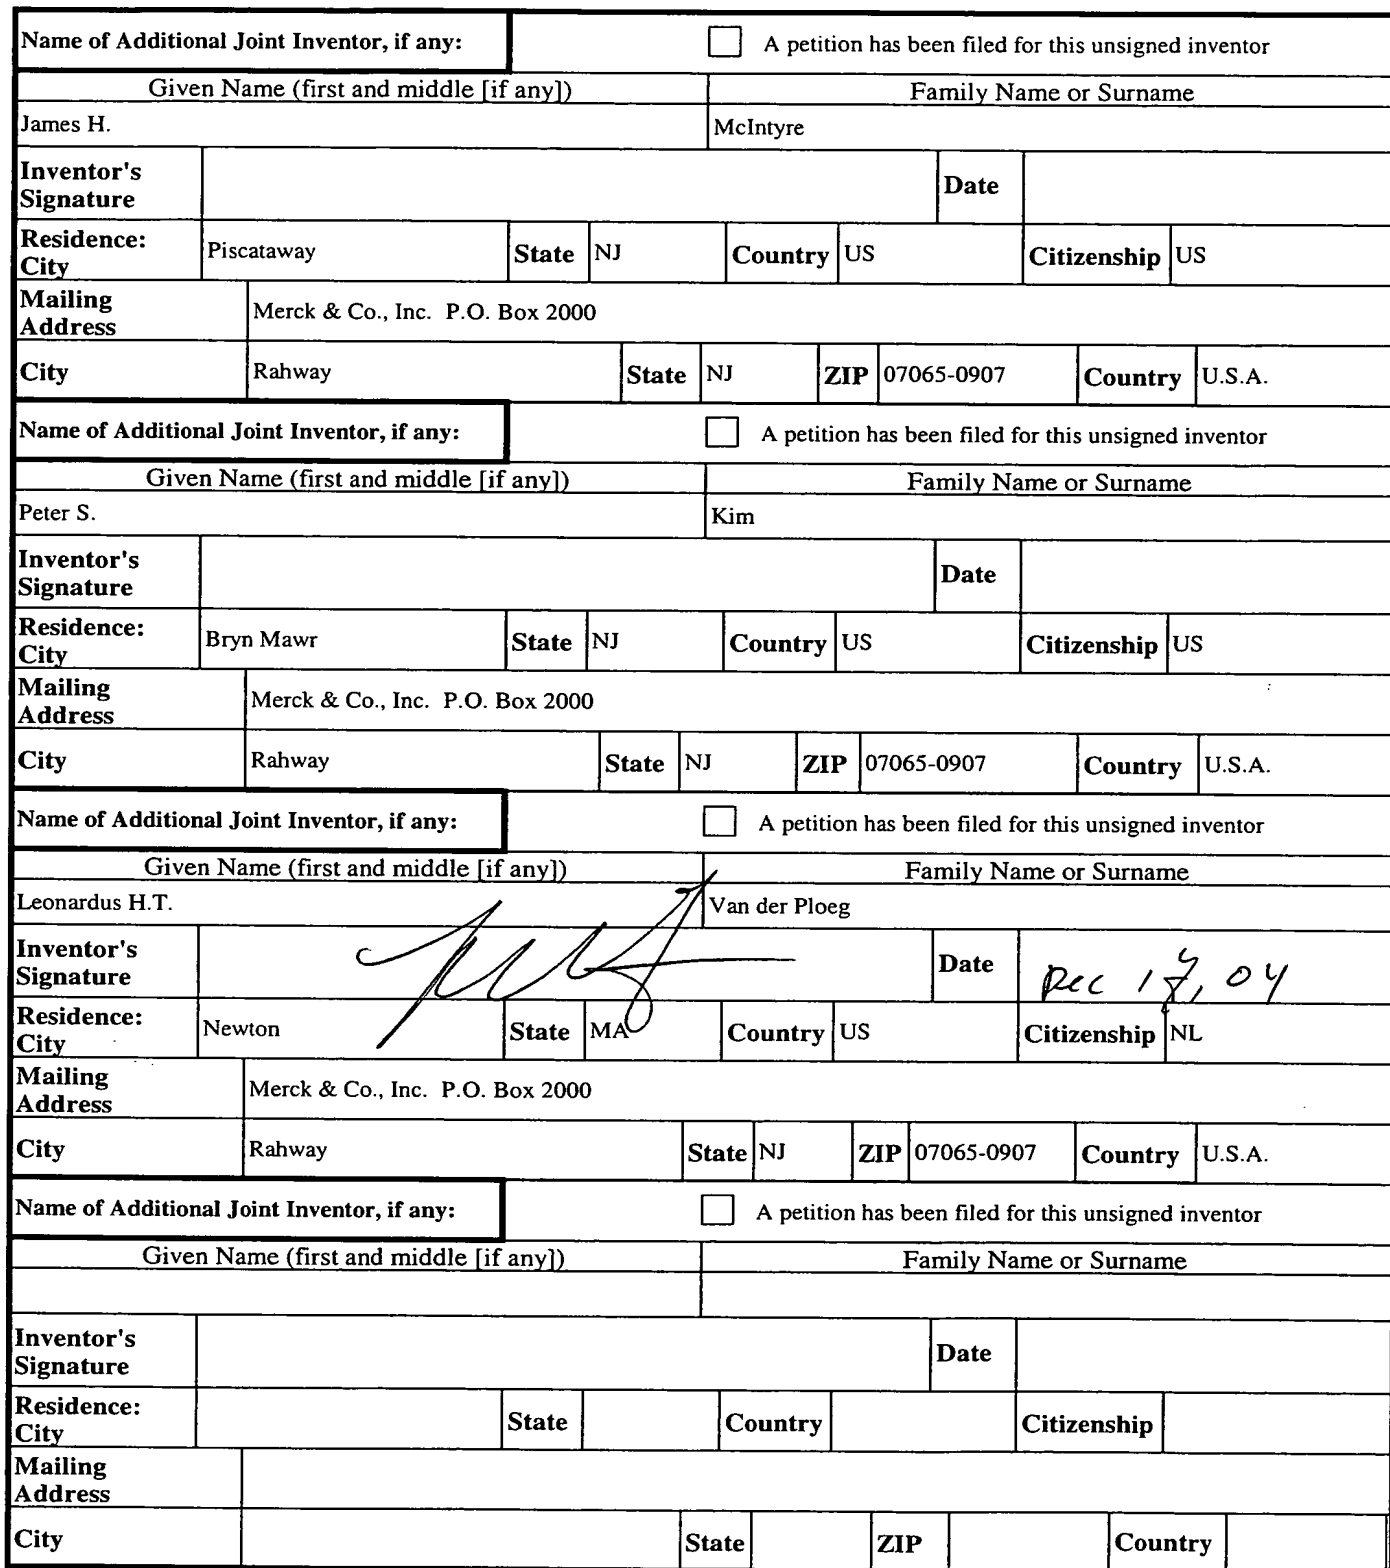 Name of Additional Joint Inventor, if any: A petition has been filed for this unsigned inventor
Given Name (first and middle [if any]) Family Name or Surname
James H. McIntyre
Inventor's Signature Date
Residence: City Piscataway State NJ Country US Citizenship US
Mailing Address Merck & Co., Inc. P.O. Box 2000
City Rahway State NJ ZIP 07065-0907 Country U.S.A.
Name of Additional Joint Inventor, if any: A petition has been filed for this unsigned inventor
Given Name (first and middle [if any]) Family Name or Surname
Peter S. Kim
Inventor's Signature Date
Residence: City Bryn Mawr State NJ Country US Citizenship US
Mailing Address Merck & Co., Inc. P.O. Box 2000
City Rahway State NJ ZIP 07065-0907 Country U.S.A.
Name of Additional Joint Inventor, if any: A petition has been filed for this unsigned inventor
Given Name (first and middle [if any]) Family Name or Surname
Leonardus H.T. Van der Ploeg
Inventor's Signature Date Dec 04
Residence: City Newton State MA Country US Citizenship NL
Mailing Address Merck & Co., Inc. P.O. Box 2000
City Rahway State NJ ZIP 07065-0907 Country U.S.A.
Name of Additional Joint Inventor, if any: A petition has been filed for this unsigned inventor
Given Name (first and middle [if any]) Family Name or Surname
Inventor's Signature Date
Residence: City State Country Citizenship
Mailing Address
City State ZIP Country